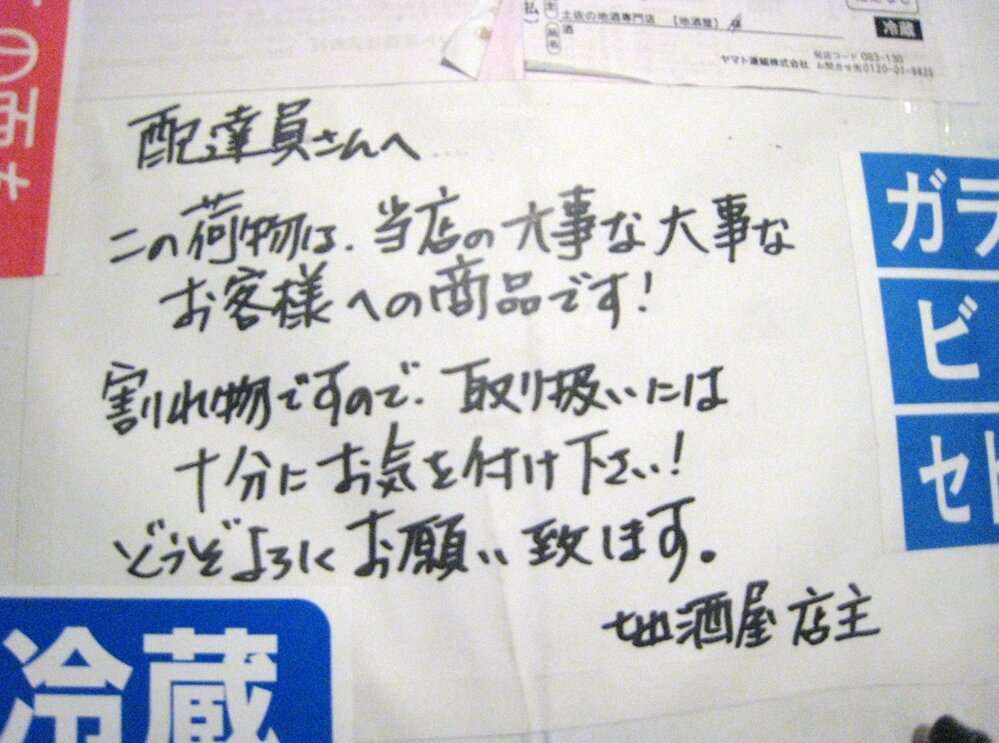 土佐の地酒専門店 【地酒屋】
品名
酒
冷蔵
ヤマト運輸株式会社
発店コード 083-130
お問合せ先0120-01-9625
配達員さんへ
この荷物は、当店の大事な大事な
お客様への商品です!
割れ物ですので、取り扱いには
十分にお気を付け下さい!
どうぞよろしくお願い致します。
地酒屋 店主
ガラ
ビ
セト
冷蔵